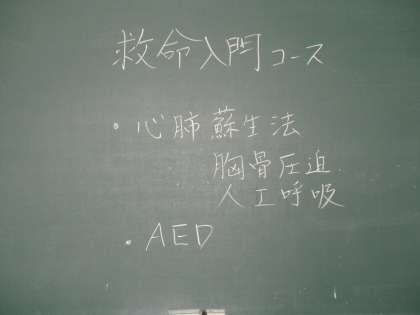 救命入門コース
・心肺蘇生法
胸骨圧迫
人工呼吸
・AED